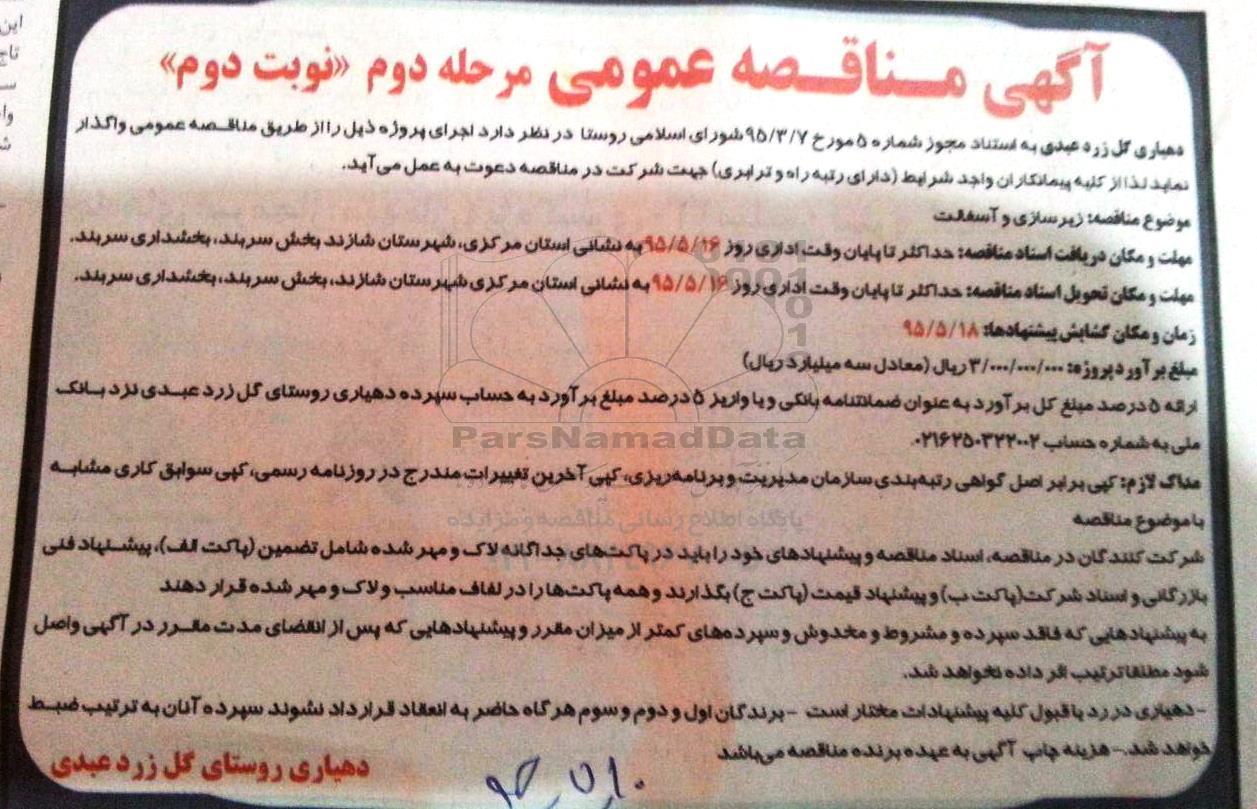 آگهی مناقصه عمومی مرحله دوم «نوبت دوم»
دهیاری گل زرد عبدی به استناد مجوز شماره ۵ مورخ ۹۵/۳/۷ شورای اسلامی روستا در نظر دارد اجرای پروژه ذیل را از طریق مناقصه عمومی واگذار
نماید لذا از کلیه پیمانکاران واجد شرایط (دارای رتبه راه و ترابری) جهت شرکت در مناقصه دعوت به عمل می‌آید.
موضوع مناقصه: زیرسازی و آسفالت
مهلت و مکان دریافت اسناد مناقصه: حداکثر تا پایان وقت اداری روز ۹۵/۵/۱۶ به نشانی استان مرکزی، شهرستان شازند بخش سربند، بخشداری سربند.
مهلت و مکان تحویل اسناد مناقصه: حداکثر تا پایان وقت اداری روز ۹۵/۵/۱۶ به نشانی استان مرکزی شهرستان شازند، بخش سربند، بخشداری سربند.
زمان و مکان گشایش پیشنهادها: ۹۵/۵/۱۸
مبلغ برآورد پروژه: ۳/۰۰۰/۰۰۰/۰۰۰ ریال (معادل سه میلیارد ریال)
ارائه ۵ درصد مبلغ کل برآورد به عنوان ضمانتنامه بانکی و یا واریز ۵ درصد مبلغ برآورد به حساب سپرده دهیاری روستای گل زرد عبدی نزد بانک
ParsNamadData
ملی به شماره حساب ۰۲۱۶۲۵۰۳۲۲۰۰۲.
مداک لازم: کپی برابر اصل گواهی رتبه‌بندی سازمان مدیریت و برنامه‌ریزی، کپی آخرین تغییرات مندرج در روزنامه رسمی، کپی سوابق کاری مشابه
با موضوع مناقصه
پایگاه اطلاع رسانی مناقصه و مزایده
شرکت کنندگان در مناقصه، اسناد مناقصه و پیشنهادهای خود را باید در پاکت‌های جداگانه لاک و مهر شده شامل تضمین (پاکت الف)، پیشنهاد فنی
بازرگانی و اسناد شرکت(پاکت ب) و پیشنهاد قیمت (پاکت ج) بگذارند و همه پاکت‌ها را در لفاف مناسب و لاک و مهر شده قرار دهند
به پیشنهادهایی که فاقد سپرده و مشروط و مخدوش و سپرده‌های کمتر از میزان مقرر و پیشنهادهایی که پس از انقضای مدت مقرر در آگهی واصل
شود مطلقا ترتیب اثر داده نخواهد شد.
-دهیاری در رد یا قبول کلیه پیشنهادات مختار است -برندگان اول و دوم و سوم هرگاه حاضر به انعقاد قرارداد نشوند سپرده آنان به ترتیب ضبط
خواهد شد.- هزینه چاپ آگهی به عهده برنده مناقصه می‌باشد
دهیاری روستای گل زرد عبدی